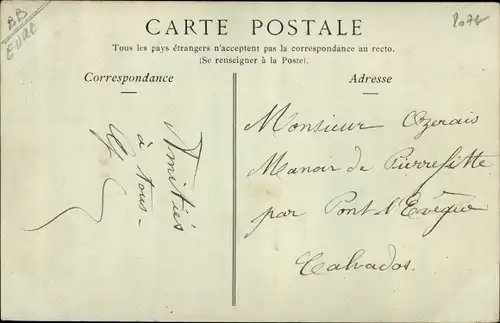 BB
EURE
CARTE POSTALE
Tous les pays étrangers n'acceptent pas la correspondance au recto.
(Se renseigner à la Poste).
Correspondance
Adresse
Amitiés
à tous -
Monsieur Ozerais
Manoir de Pierrefitte
par Pont l'Evêque
Calvados.